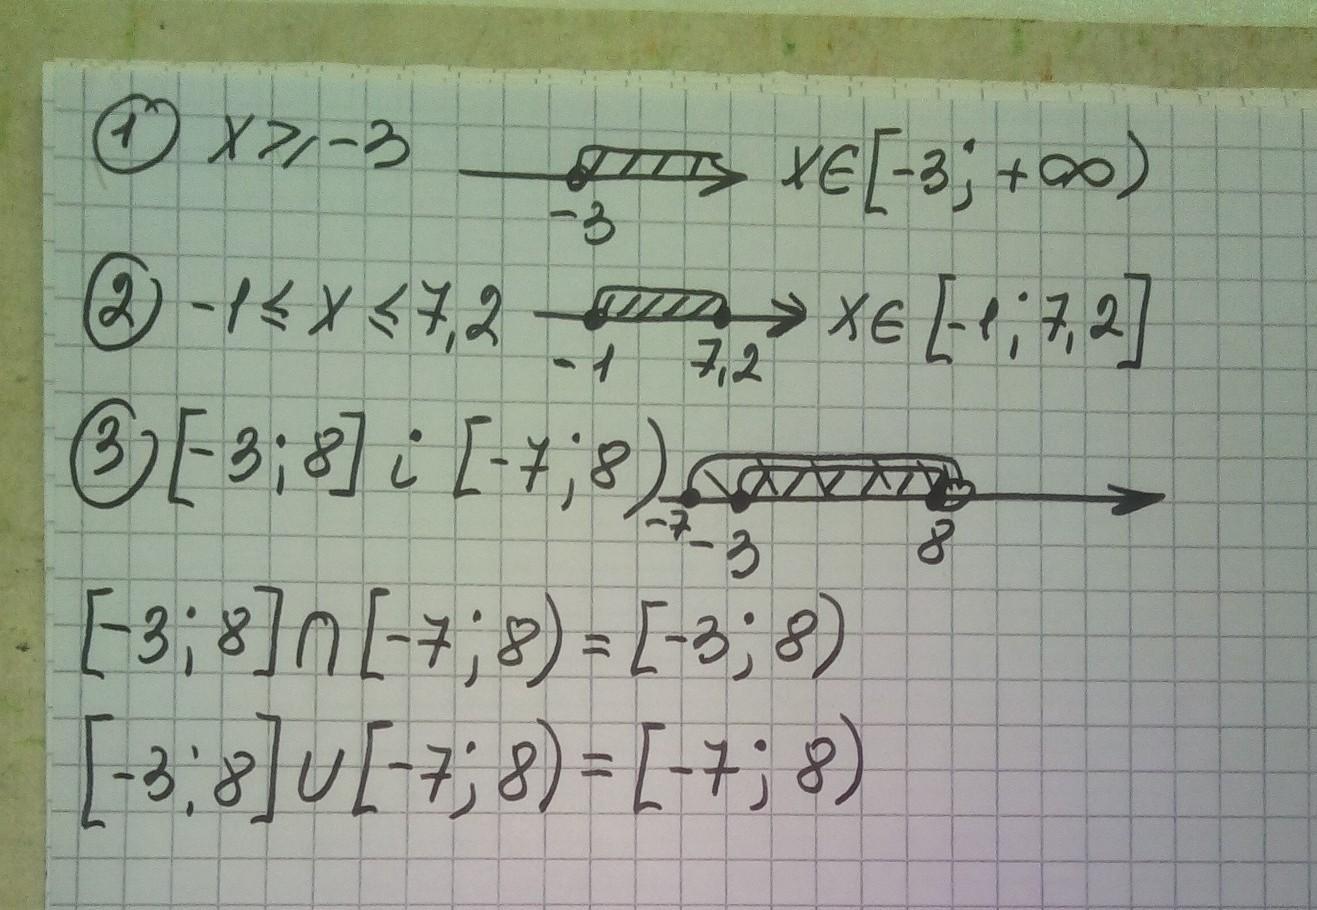 1 x ≥ -3 -3 x∈[-3; +∞)
2 -1 ≤ x ≤ 7,2 -1 7,2 x∈[-1; 7,2]
3 [-3; 8] i [-7; 8) -7 -3 8
[-3; 8] ∩ [-7; 8) = [-3; 8)
[-3; 8] ∪ [-7; 8) = [-7; 8)